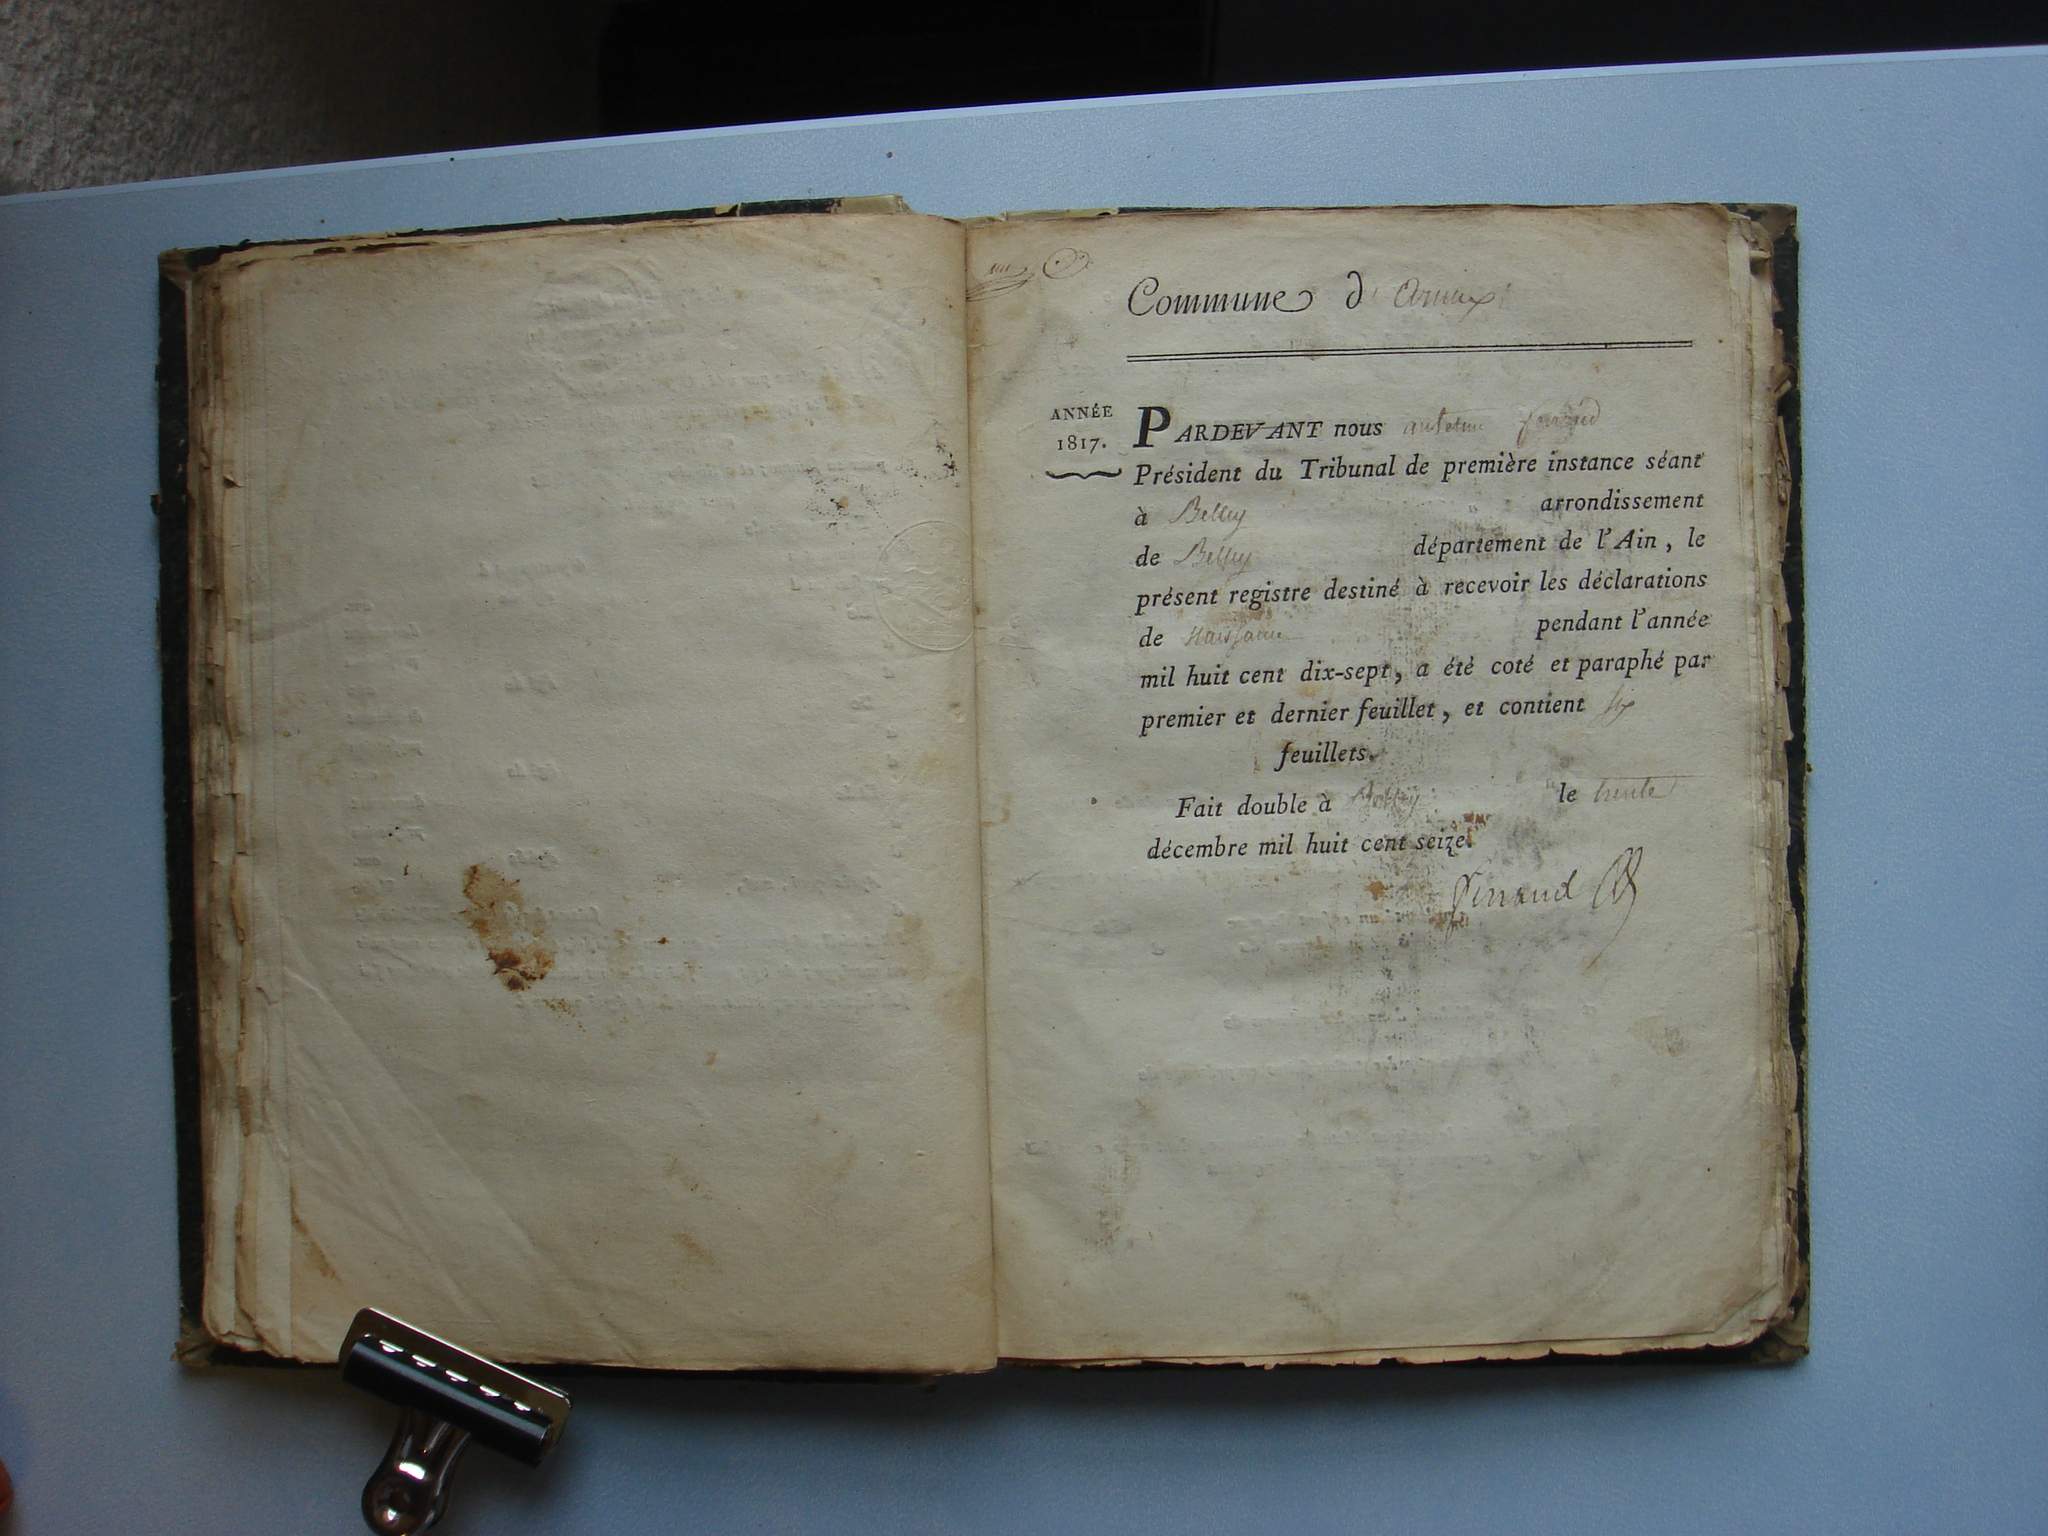 Commune d
ANNÉE
1817.
PARDEVANT nous
Président du Tribunal de première instance séant
à Belley arrondissement
de Belley département de l'Ain, le
présent registre destiné à recevoir les déclarations
de Naissance pendant l'année
mil huit cent dix-sept, a été coté et paraphé par
premier et dernier feuillet, et contient six
feuillets.
Fait double à Belley le trente
décembre mil huit cent seize.